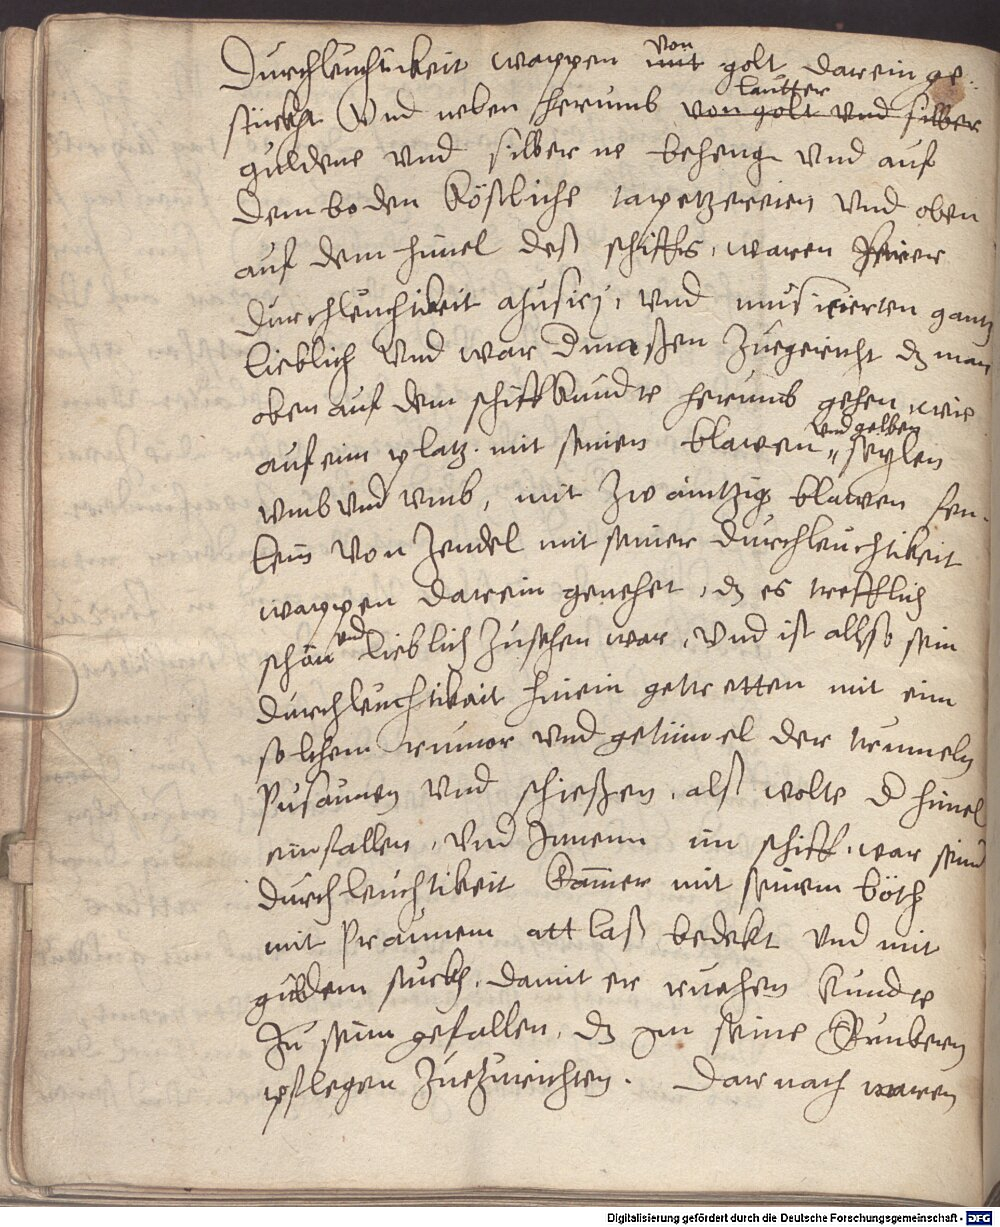 Durchleuchtikeit wappen von mit golt darein ge-
stückht Vnd neben herumb lautter von golt vnd silber
guldene vnd silberne beheng vnd auf
dem boden köstliche tapetzereien vnd oben
auf dem himel deß schiffs, waren seiner
Durchleuchtikeit Musici, vnd musicierten gantz
lieblich vnd war dmaßen Zuegericht dz man
oben auf dem schiff kundte herumb gehen, wie
auf eim platz. mit seinen blawen vnd gelben seylen
vmb vnd vmb, mit zwaintzig blawen fen-
lein von Zendel mit seiner Durchleuchtikeit
wappen darein genehet, dz es trefflich
schön vnd lieblich Zusehen war, Vnd ist allso sein
Durchleuchtikeit hinein gettretten mit eim
solchem rumor vnd getümel der trumeln
Pusaunen vnd schießen, alß wolte d himel
einfallen, vnd Innenn im schiff. war seine
Durchleuchtikeit Kamer mit seinem böth
mit Praunem attlaß bedekt vnd mit
guldem stuckh, damit er ruehen kundte
Zu seim gefallen, dz im seine
pflegen Zuezurichten. Dar nach waren
Digitalisierung gefördert durch die Deutsche Forschungsgemeinschaft - DFG